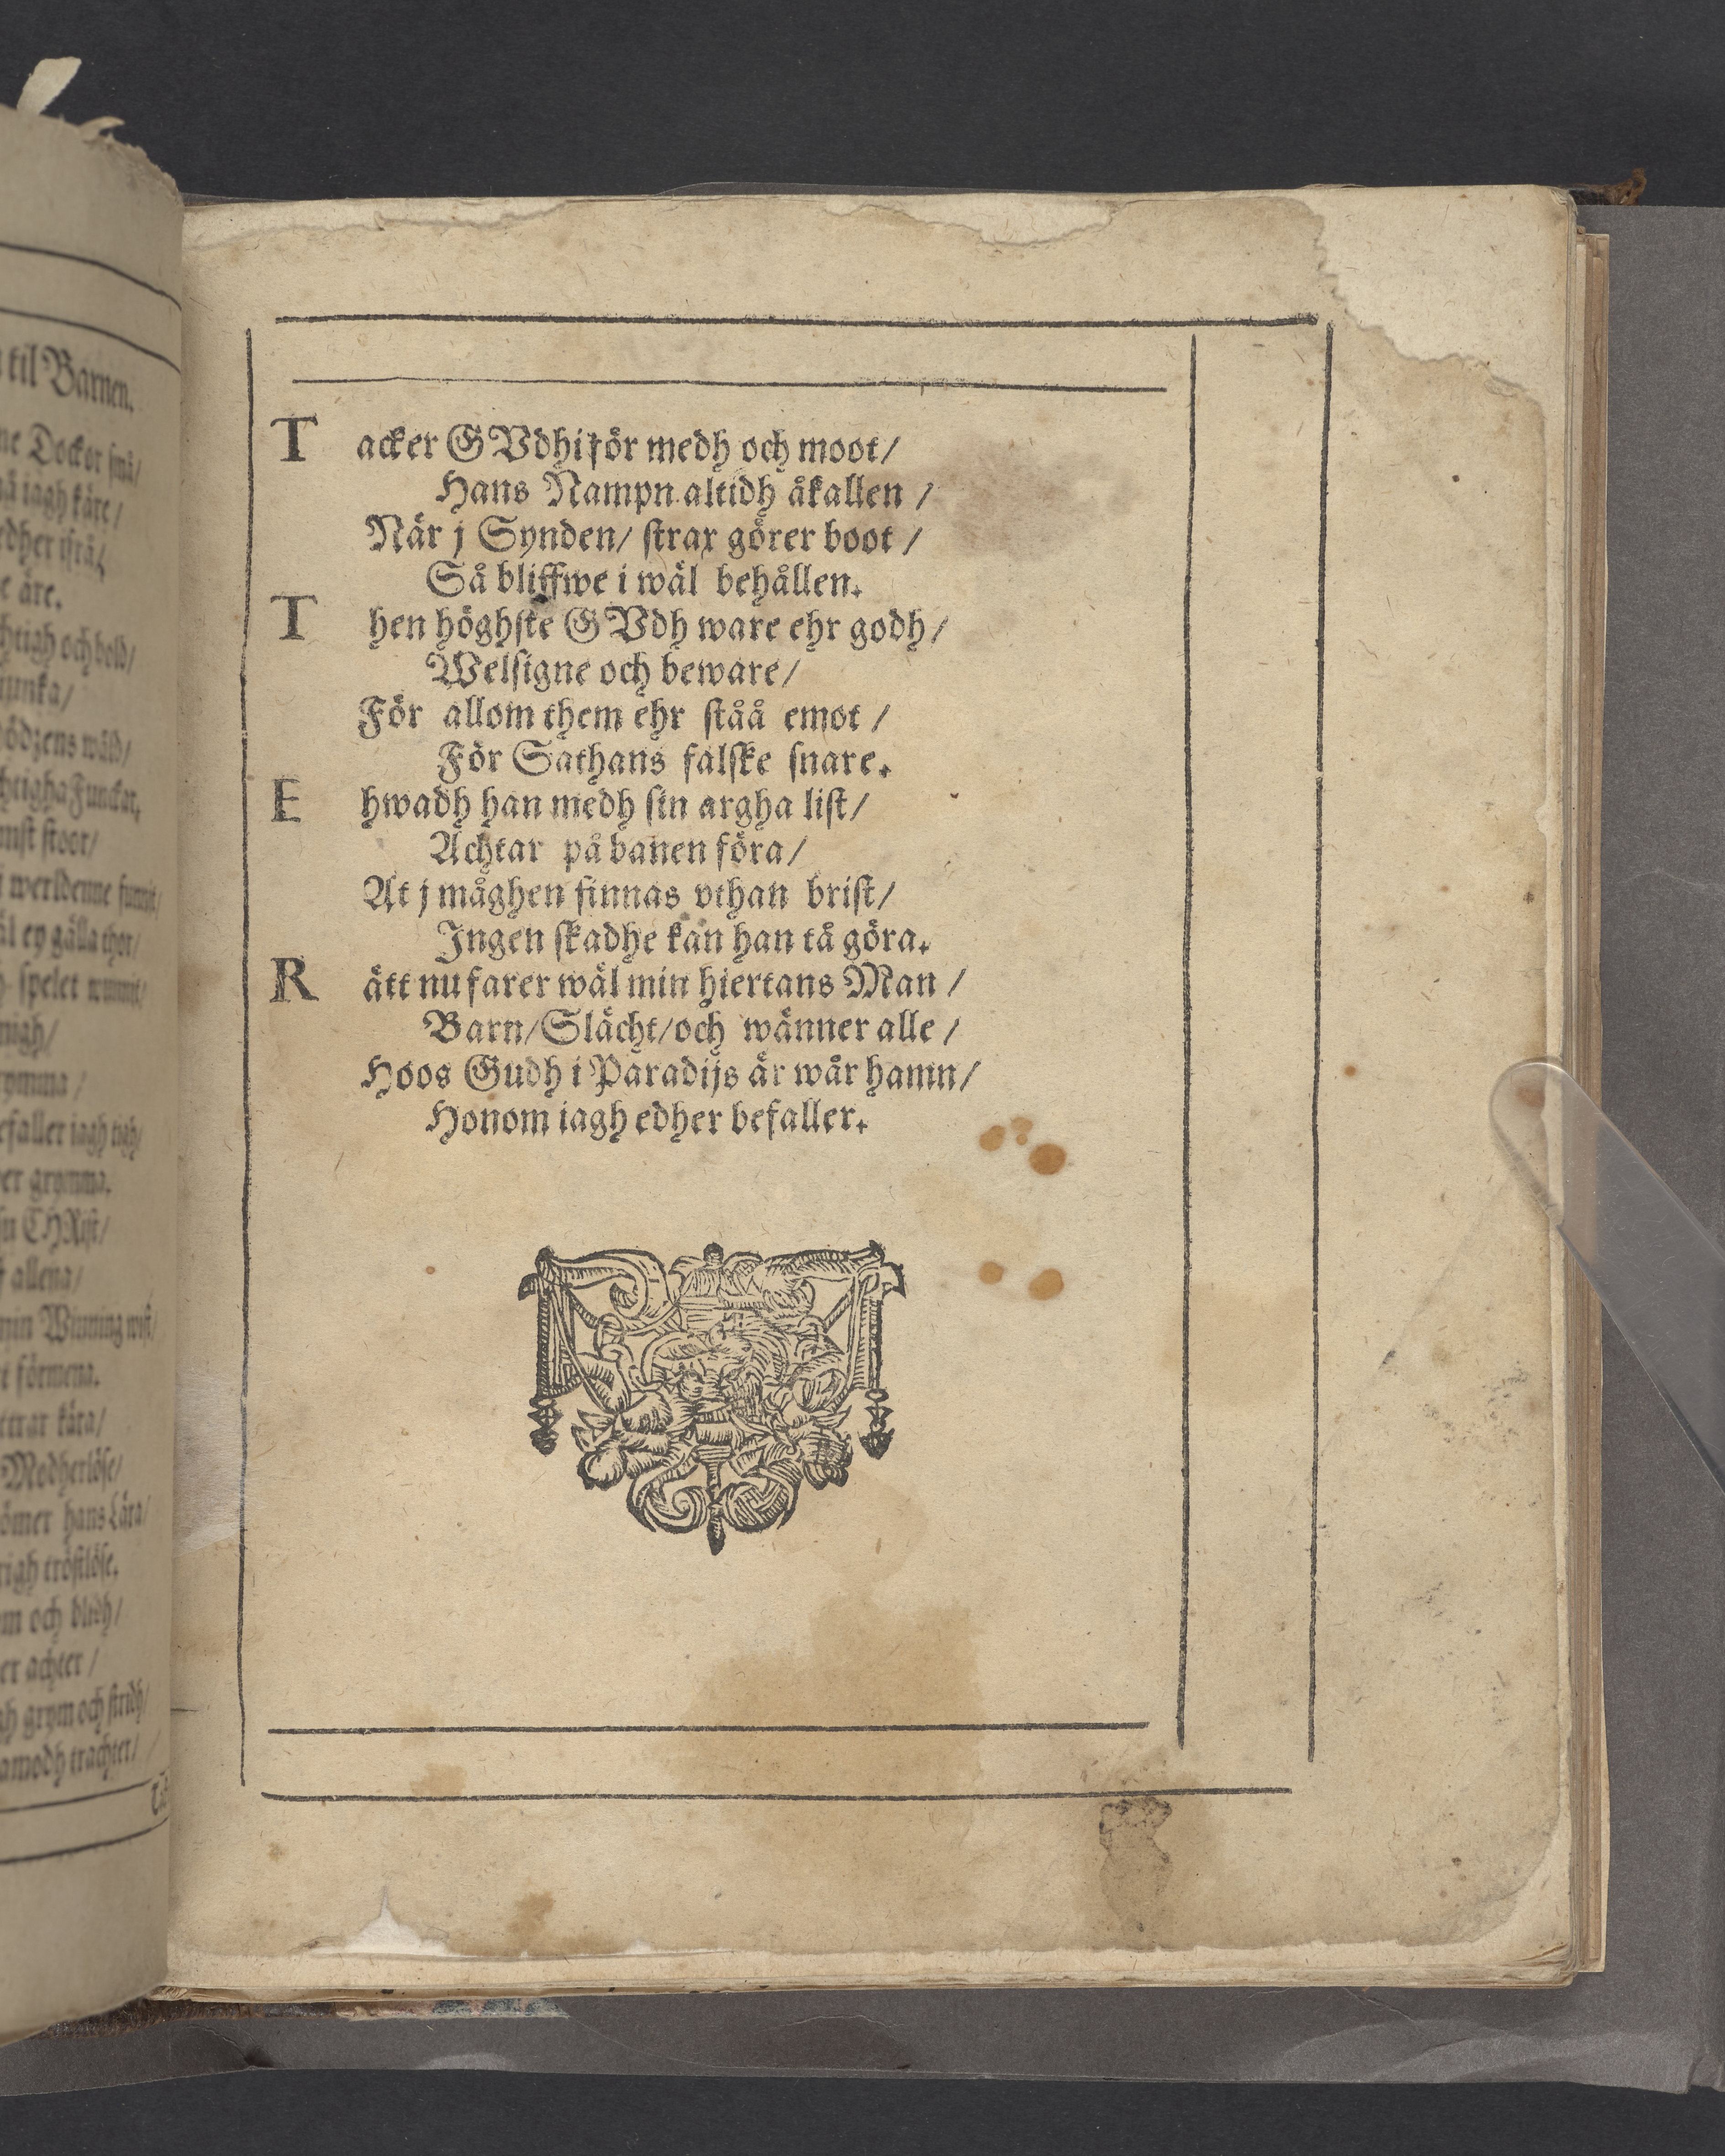 til Barnen.
Docker små/
iagh käre/
äre.
och bold/
wåld/
Funckor,
stoor/
werldenne
ey gälla thor/
spelet wunnit/
befaller iagh tigh/
grymma.
CHRist/
allena/
min Winning wist/
förmena.
kära/
Moderlöse/
hans Lära/
tröstlöse.
och blidh/
achter /
grym och stridh/
trachter/
T acker GVDhi för medh och moot/
Hans Nampn altidh åkallen /
När j Synden/ strax görer boot /
Så bliffwe i wäl behållen.
T hen höghste GVDh ware ehr godh/
Welsigne och beware/
För allom them ehr ståå emot /
För Sathans falske snare.
E hwadh han medh sin argha list/
Achtar på banen föra/
At j måghen finnas vthan brist/
Ingen skadhe kan han tå göra.
R ätt nu farer wäl min hiertans Man /
Barn/Slächt/och wänner alle /
Hoos Gudh i Paradijs är wår hamn/
Honom iagh edher befaller.